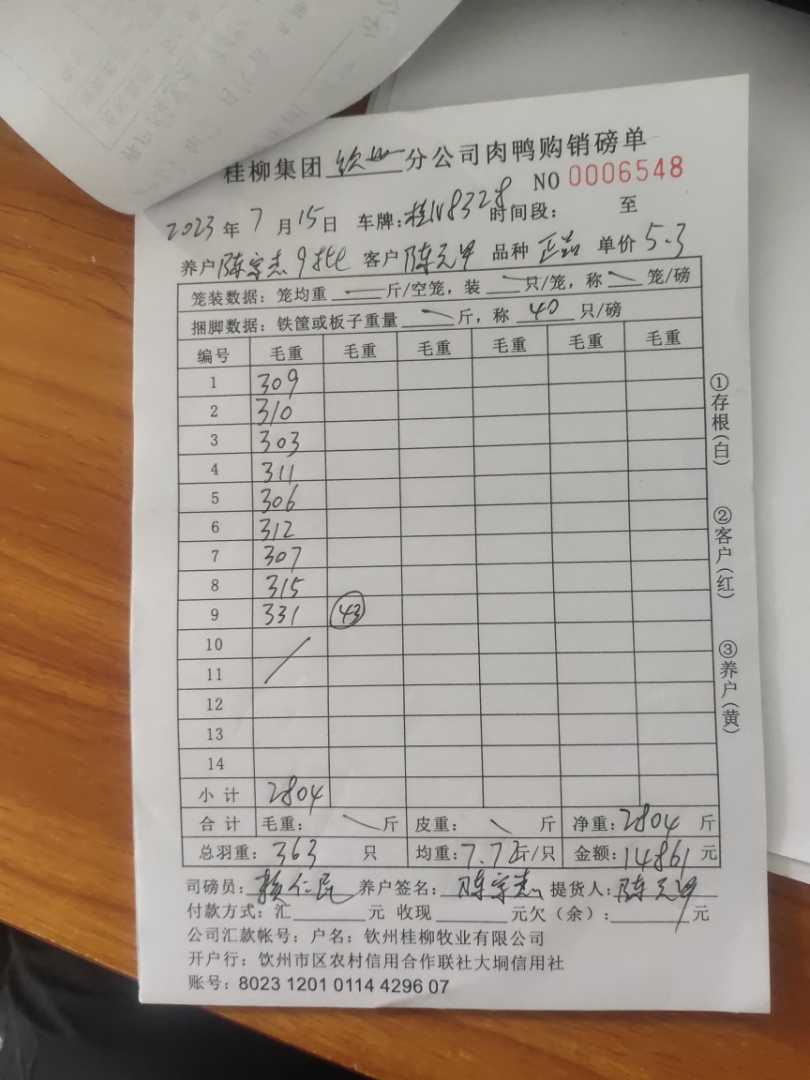 桂柳集团 钦州 分公司肉鸭购销磅单
NO 0006548
2023 年 7 月 15 日 车牌: 桂N8328 时间段: 至
养户 陈宗杰 9批 客户 陈元甲 品种 正品 单价 5.3
笼装数据: 笼均重 斤/空笼, 装 只/笼, 称 笼/磅
捆脚数据: 铁筐或板子重量 斤, 称 40 只/磅
编号 毛重 毛重 毛重 毛重 毛重 毛重
1 309
2 310
3 303
4 311
5 306
6 312
7 307
8 315
9 331 43
10
11
12
13
14
小计 2804
合计 毛重: 斤 皮重: 斤 净重: 2804 斤
总羽重: 363 只 均重: 7.72 斤/只 金额: 14861 元
司磅员: 赖仁民 养户签名: 陈宗杰 提货人: 陈元甲
付款方式: 汇 元 收现 元欠(余): 元
公司汇款帐号: 户名: 钦州桂柳牧业有限公司
开户行: 饮州市区农村信用合作联社大垌信用社
账号: 8023 1201 0114 4296 07
①存根(白)
②客户(红)
③养户(黄)